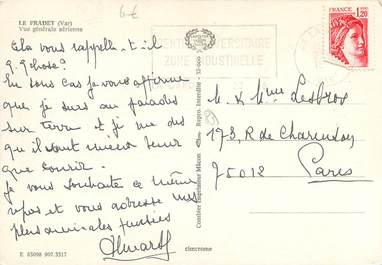 6€
LE PRADET (Var)
Vue générale aérienne
Cela vous rappelle-t-il
q. q. chose?
En tous cas je vous affirme
que je suis au paradis
sur terre et je me dis
qu'il vont mieux tenir
que courir.
Je vous souhaite ce même
repos et vous adresse mes
plus amicales pensées
E 83098 907.3317
Combier Imprimeur Mâcon
Repro. Interdite - 12-069
cimcrome
CENTRE UNIVERSITAIRE
ZONE INDUSTRIELLE
FRANCE
1,20
M & Mme
173, R de Charenton
75012 Paris